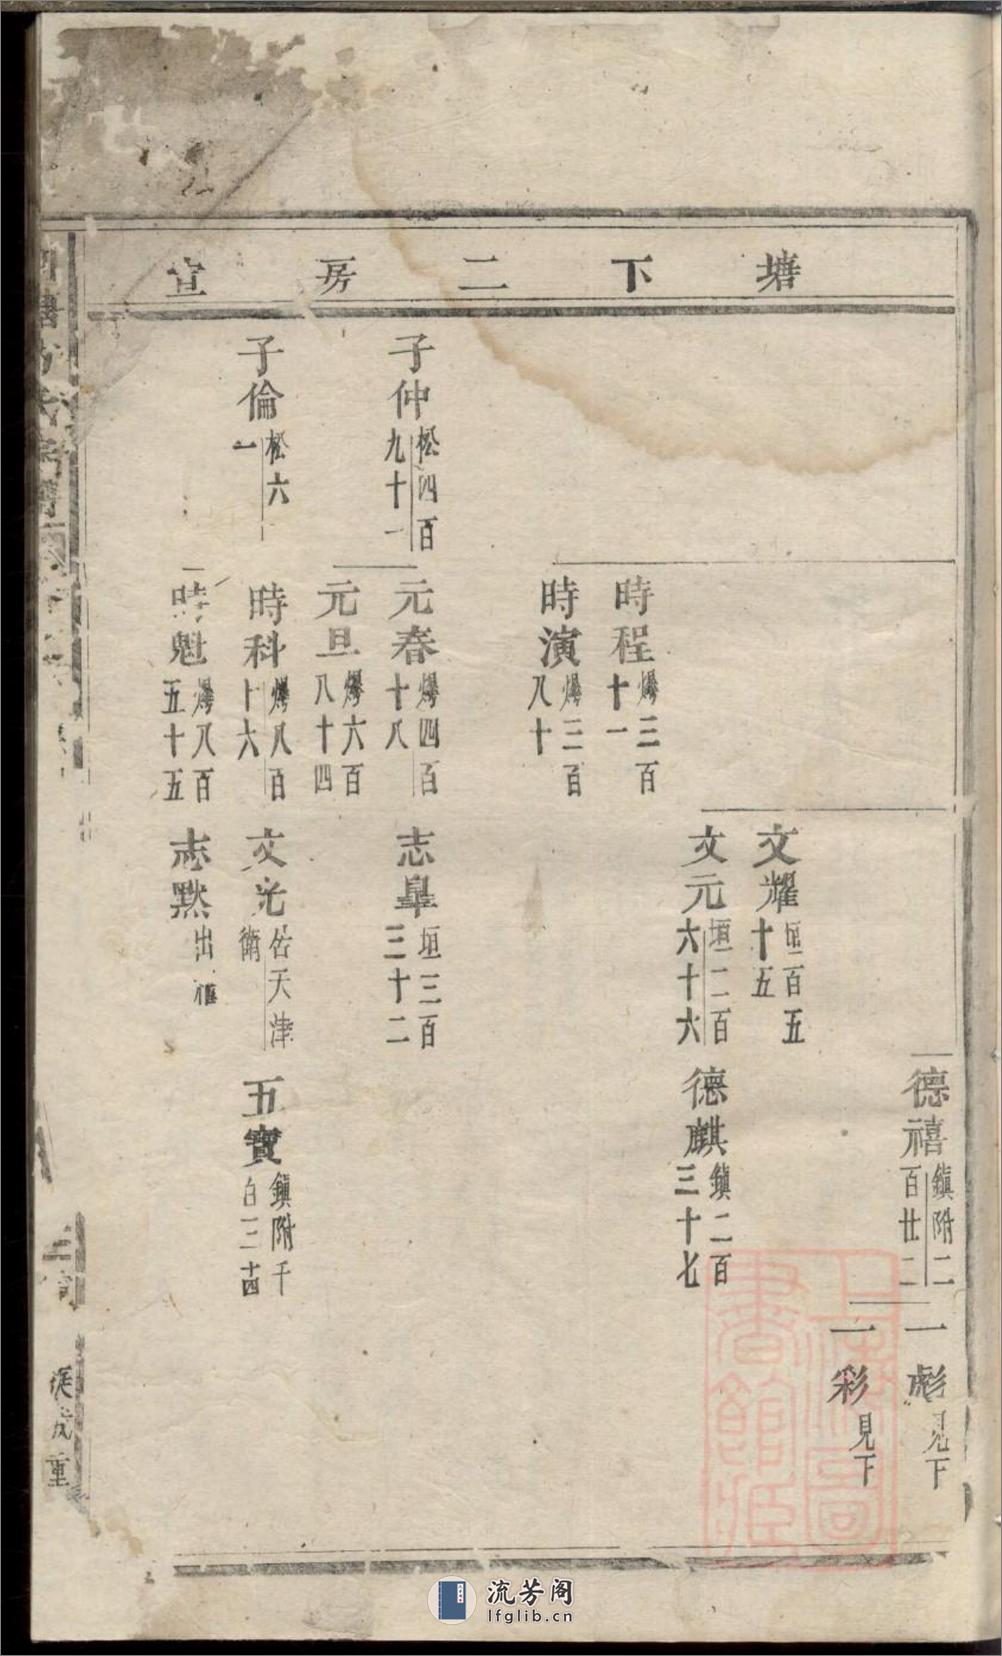 塘下二房宣
德禧 鎮附二百廿二
一彪 見下
一彩 見下
文耀 垣二百五十五
文元 垣二百六十六
德麒 鎮二百三十七
時程 爆三百十一
時演 爆三百八十
子仲 松四百九十一
元春 爆四百十八
志皋 垣三百三十二
元旦 爆六百八十四
子倫 松六一
時科 爆八百十六
文光 佔天津衛
五寶 鎮附千百三十四
時魁 爆八百五十五
志默 出
氏宗譜
成重
上海圖書館藏
流芳阁
lfglib.cn